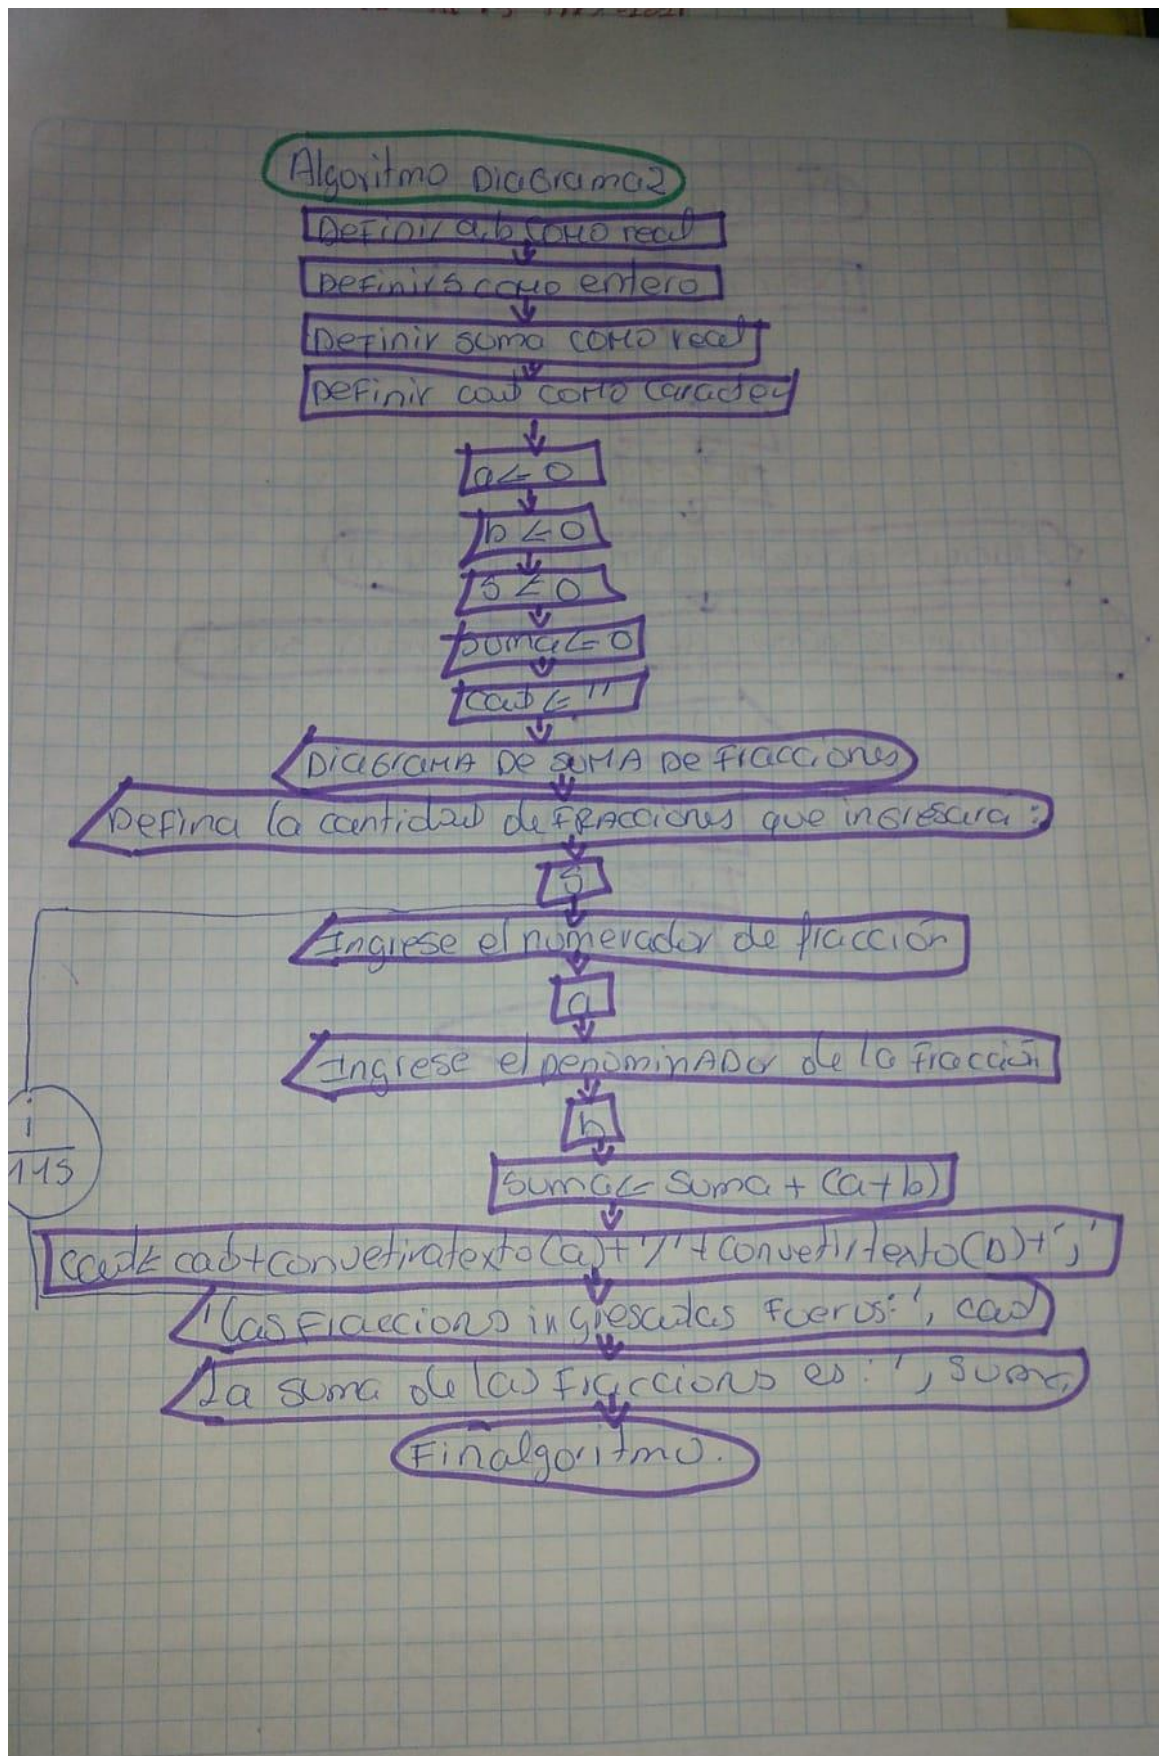 Algoritmo Diagrama2
Definir a,b como real
Definir s como entero
Definir suma como real
Definir cad como caracter
a ← 0
b ← 0
s ← 0
suma ← 0
cad ← ''
Diagrama de suma de fracciones
Defina la cantidad de fracciones que ingresara :
S
Ingrese el numerador de fracción
a
Ingrese el Denominador de la fracción
b
i
1 1 S
suma ← suma + (a+b)
cad ← cad+convetiratexto(a)+'/'+convetirtexto(b)+','
'las Fraccions ingresadas fueros: ', cad
La suma de las fraccions es: ', suma
Finalgoritmo.